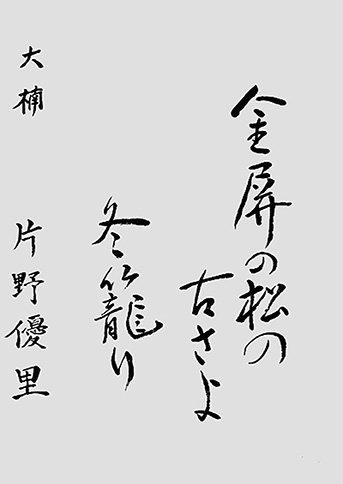 金屏の松の
古さよ
冬籠り
大楠 片野優里